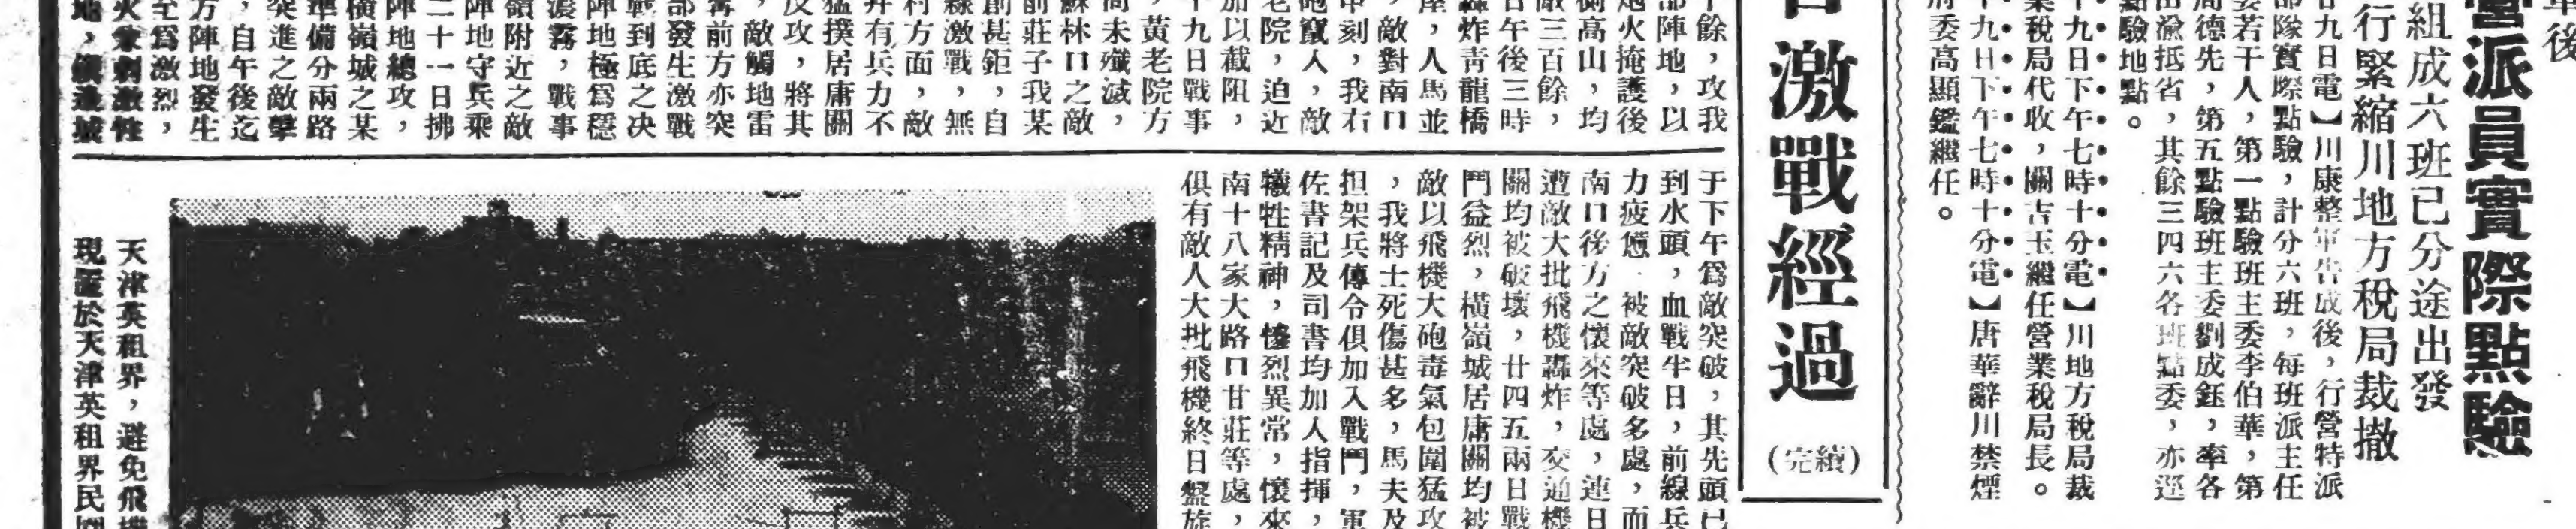 軍後
營派員實際點驗
組成六班已分途出發
行緊縮川地方稅局裁撤
廿九日電】川康整軍告成後，行營特派
部隊實際點驗，計分六班，每班派主任
委若干人，第一點驗班主委李伯華，第
局德先，第五點驗班主委劉成鈺，率各
出渝抵省，其餘三四六各班點委，亦逕
點驗地點。
十九日下午七時十分電】川地方稅局裁
業稅局代收，關吉玉繼任營業稅局長。
十九日下午七時十分電】唐華辭川禁煙
府委高顯鑑繼任。
激戰經過
（續完）
千餘，攻我
部陣地，以
炮火掩護後
側高山，均
敵三百餘，
日午後三時
轟炸靑龍橋
屋，人馬並
，敵對南口
申刻，我右
砲竄入，敵
老院，迫近
，黃老院方
加以截阻，
十九日戰事
尚未殲滅，
蘇林口之敵
前莊子我某
創甚鉅，自
線激戰，無
村方面，敵
幷有兵力不
猛撲居庸關
反攻，將其
，敵觸地雷
薺前方亦突
部發生激戰
戰到底之決
陣地極爲穩
濃霧，戰事
嶺附近之敵
陣地守兵乘
二十一日拂
陣地總攻，
橫嶺城之某
準備分兩路
突進之敵擊
，自午後迄
方陣地發生
至爲激烈，
于下午爲敵突破，其先頭已
到水頭，血戰半日，前線兵
力疲憊，被敵突破多處，而
南口後方之懷來等處，連日
遭敵大批飛機轟炸，交通機
關均被破壞，廿四五兩日戰
鬥益烈，橫嶺城居庸關均被
敵以飛機大砲毒氣包圍猛攻
，我將士死傷甚多，馬夫及
担架兵傳令俱加入戰鬥，軍
佐書記及司書均加入指揮，
犧牲精神，慘烈異常，懷來
南十八家大路口甘莊等處，
俱有敵人大批飛機終日盤旋
天津英租界，避免飛機
現置於天津英租界民園